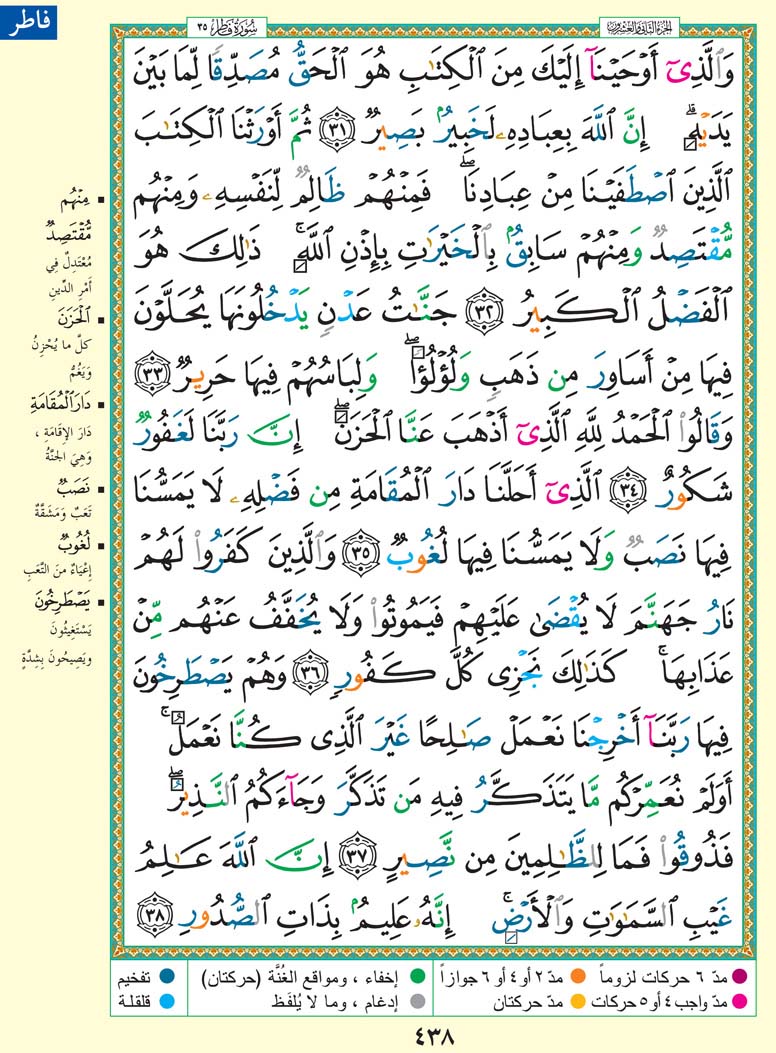 فاطر
سُورَةُ فَاطِر ٣٥
الجزء الثاني والعشرون
وَٱلَّذِىٓ أَوْحَيْنَآ إِلَيْكَ مِنَ ٱلْكِتَـٰبِ هُوَ ٱلْحَقُّ مُصَدِّقًا لِّمَا بَيْنَ
يَدَيْهِ ۗ إِنَّ ٱللَّهَ بِعِبَادِهِۦ لَخَبِيرٌۢ بَصِيرٌ ٣١ ثُمَّ أَوْرَثْنَا ٱلْكِتَـٰبَ
ٱلَّذِينَ ٱصْطَفَيْنَا مِنْ عِبَادِنَا ۖ فَمِنْهُمْ ظَالِمٌ لِّنَفْسِهِۦ وَمِنْهُم
مُّقْتَصِدٌ وَمِنْهُمْ سَابِقٌۢ بِٱلْخَيْرَٰتِ بِإِذْنِ ٱللَّهِ ۚ ذَٰلِكَ هُوَ
ٱلْفَضْلُ ٱلْكَبِيرُ ٣٢ جَنَّـٰتُ عَدْنٍ يَدْخُلُونَهَا يُحَلَّوْنَ
فِيهَا مِنْ أَسَاوِرَ مِن ذَهَبٍ وَلُؤْلُؤًا ۖ وَلِبَاسُهُمْ فِيهَا حَرِيرٌ ٣٣
وَقَالُوا۟ ٱلْحَمْدُ لِلَّهِ ٱلَّذِىٓ أَذْهَبَ عَنَّا ٱلْحَزَنَ ۖ إِنَّ رَبَّنَا لَغَفُورٌ
شَكُورٌ ٣٤ ٱلَّذِىٓ أَحَلَّنَا دَارَ ٱلْمُقَامَةِ مِن فَضْلِهِۦ لَا يَمَسُّنَا
فِيهَا نَصَبٌ وَلَا يَمَسُّنَا فِيهَا لُغُوبٌ ٣٥ وَٱلَّذِينَ كَفَرُوا۟ لَهُمْ
نَارُ جَهَنَّمَ لَا يُقْضَىٰ عَلَيْهِمْ فَيَمُوتُوا۟ وَلَا يُخَفَّفُ عَنْهُم مِّنْ
عَذَابِهَا ۚ كَذَٰلِكَ نَجْزِى كُلَّ كَفُورٍ ٣٦ وَهُمْ يَصْطَرِخُونَ
فِيهَا رَبَّنَآ أَخْرِجْنَا نَعْمَلْ صَـٰلِحًا غَيْرَ ٱلَّذِى كُنَّا نَعْمَلُ ۚ
أَوَلَمْ نُعَمِّرْكُم مَّا يَتَذَكَّرُ فِيهِ مَن تَذَكَّرَ وَجَآءَكُمُ ٱلنَّذِيرُ ۖ
فَذُوقُوا۟ فَمَا لِلظَّـٰلِمِينَ مِن نَّصِيرٍ ٣٧ إِنَّ ٱللَّهَ عَـٰلِمُ
غَيْبِ ٱلسَّمَـٰوَٰتِ وَٱلْأَرْضِ ۚ إِنَّهُۥ عَلِيمٌۢ بِذَاتِ ٱلصُّدُورِ ٣٨
مِنْهُم
مُّقْتَصِدٌ
مُعْتَدِلٌ فِي
أَمْرِ الدِّينِ
الْحَزَنَ
كلَّ ما يُحْزِنُ
وَيَغُمُّ
دَارَ ٱلْمُقَامَةِ
دَارَ الإِقَامَةِ ،
وَهِيَ الجَنَّةُ
نَصَبٌ
تَعَبٌ وَمَشَقَّةٌ
لُغُوبٌ
إِعْيَاءٌ منَ التَّعَبِ
يَصْطَرِخُونَ
يَسْتَغِيثُونَ
ويَصِيحُونَ بِشِدَّةٍ
مدّ ٦ حركات لزوماً
مدّ ٢ أو ٤ أو ٦ جوازاً
إخفاء ، ومواقع الغُنَّة (حركتان)
تفخيم
مدّ واجب ٤ أو ٥ حركات
مدّ حركتان
إدغام ، وما لا يُلفَظ
قلقلة
٤٣٨